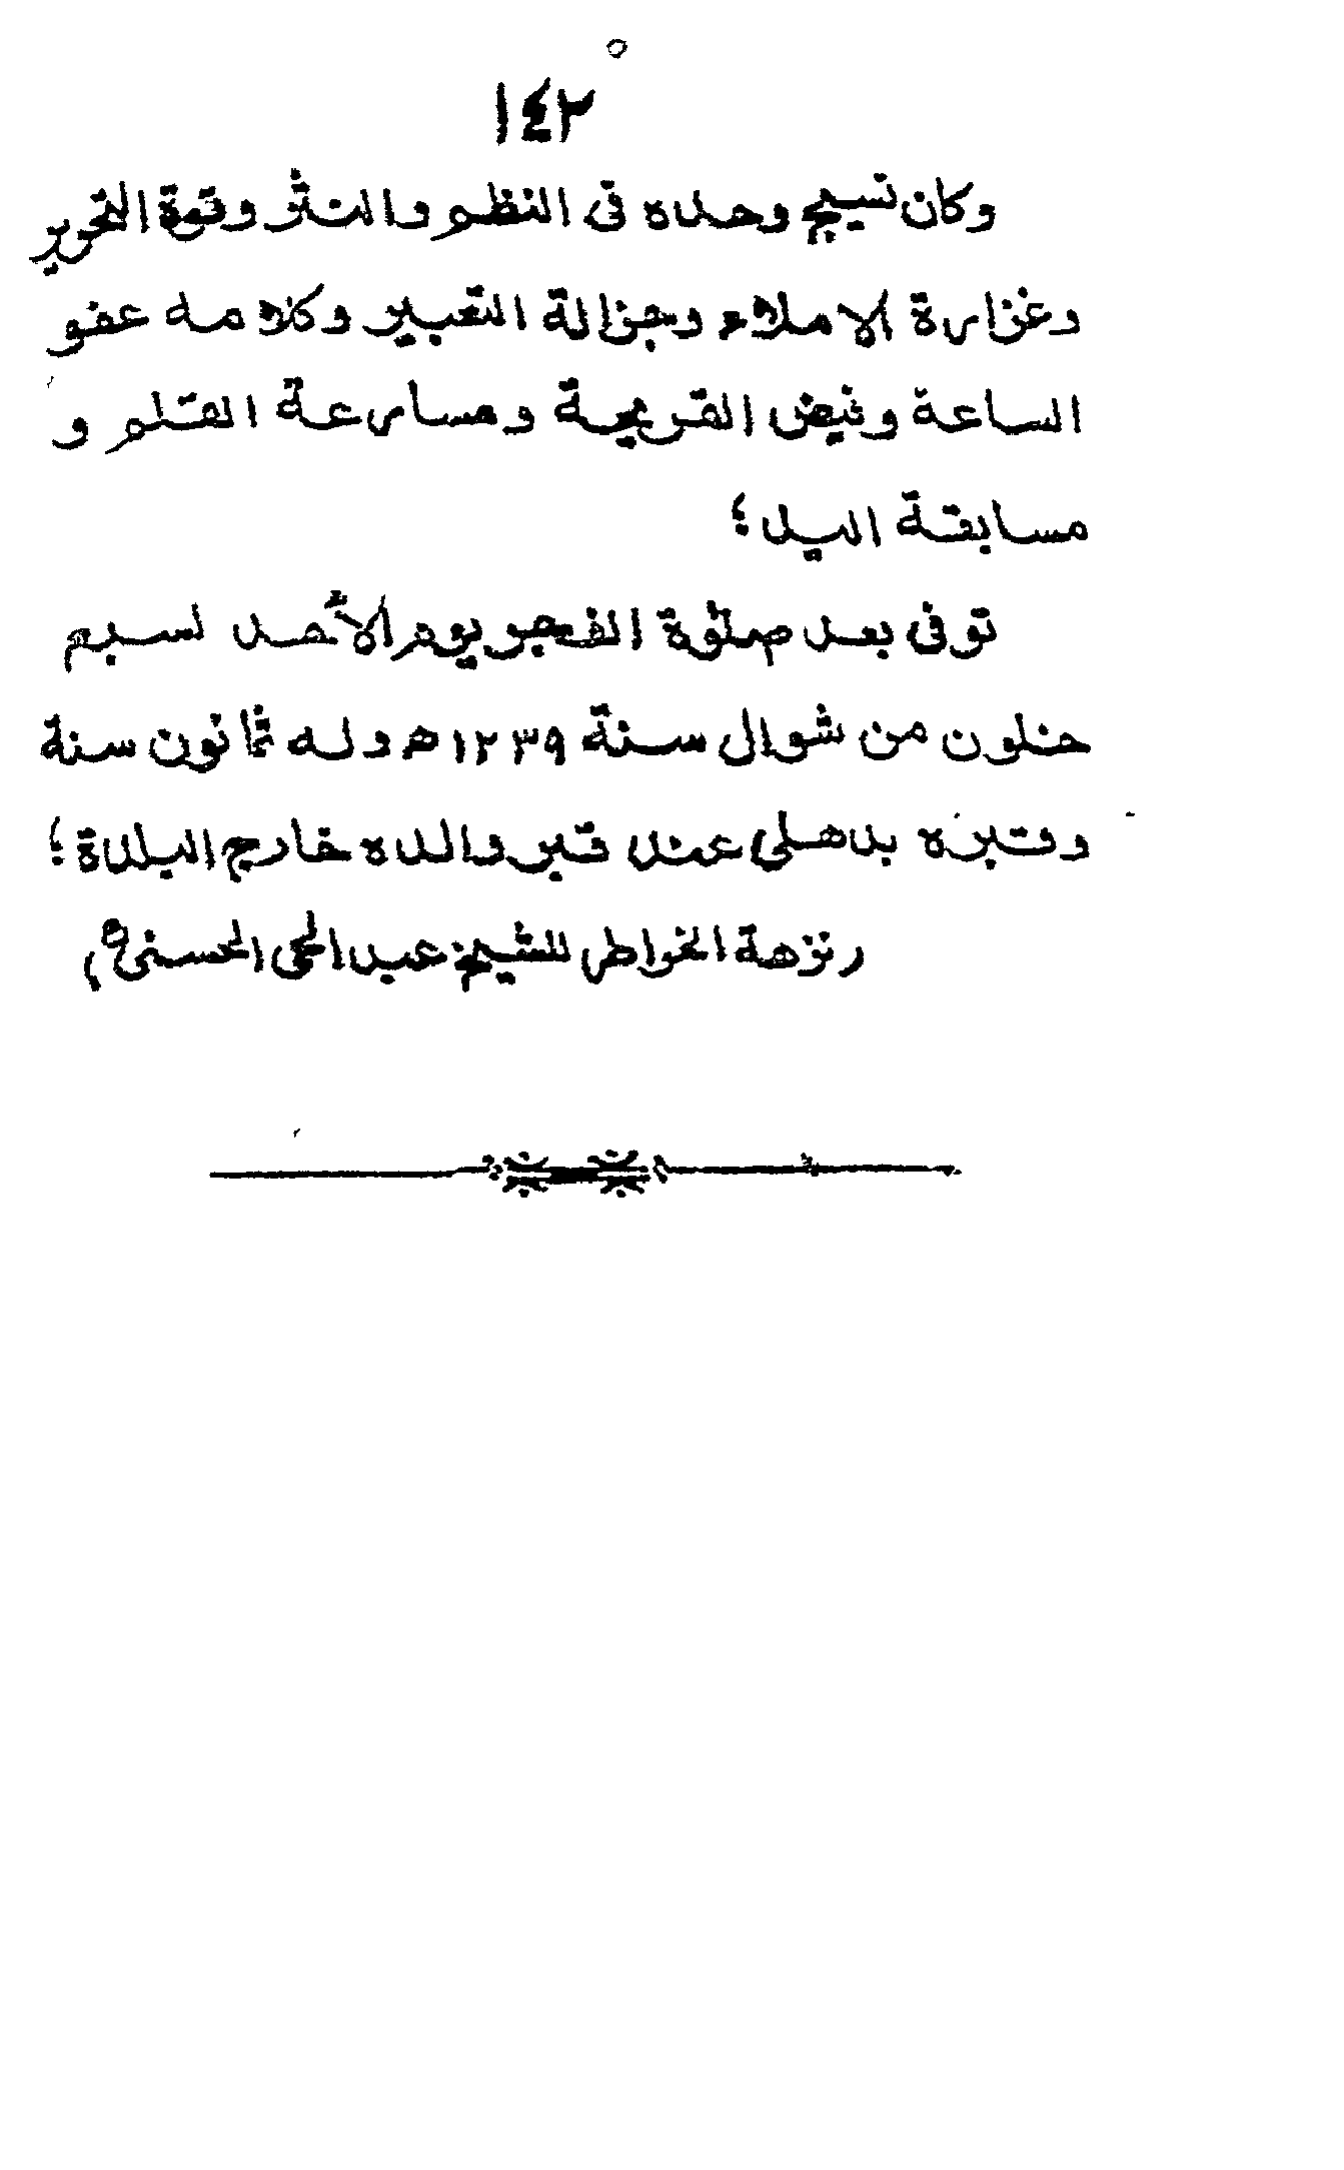 ١٤٢
وكان نسيج وحده فى النظم والنثر وقوة التحرير
وغزارة الاملاء وجزالة التعبير وكلامه عفو
الساعة وفيض القريحة ومسارعة القلم و
مسابقة اليد؛
توفى بعد صلوٰة الفجر يوم الأحد لسبع
خلون من شوال سنة ١٢٣٩ه وله ثمانون سنة
وقبره بدهلى عند قبر والده خارج البلدة؛
(نزهة الخواطر للشيخ عبد الحى الحسنى)